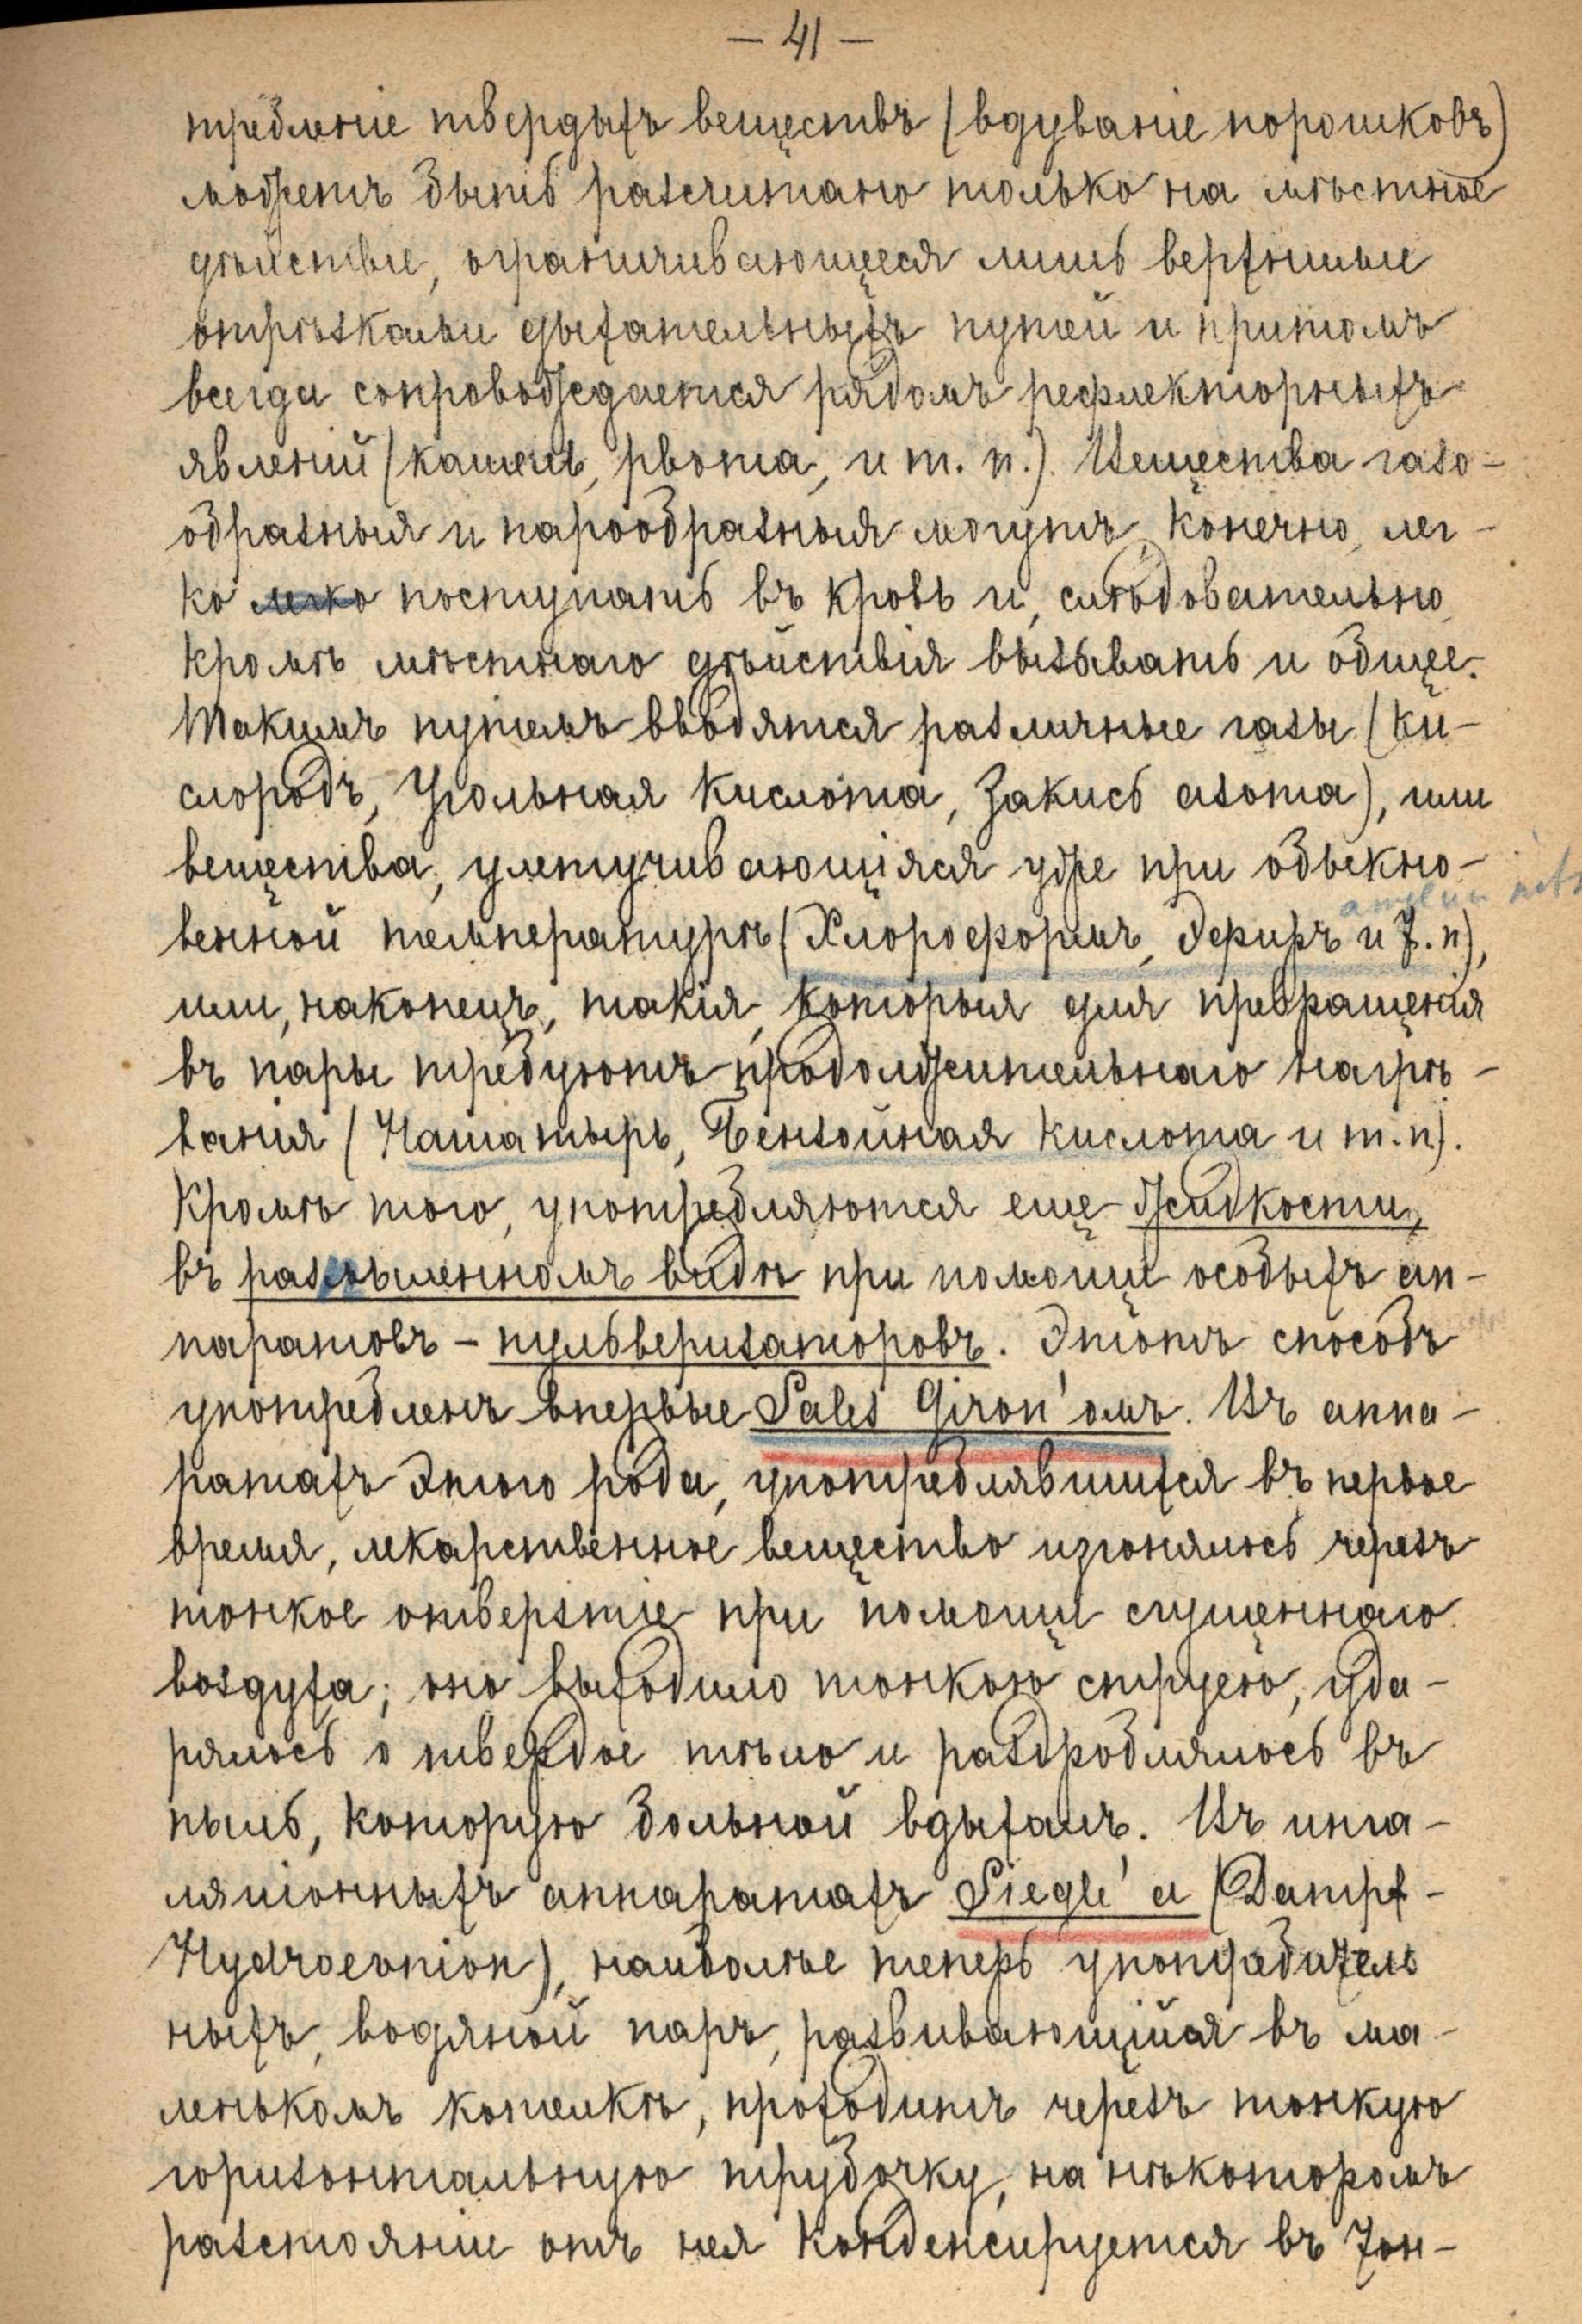 — 41 —
требленіе твердыхъ веществъ (вдуваніе порошковъ)
можетъ быть разсчитано только на мѣстное
дѣйствіе, ограничивающееся лишь верхними
отрѣзками дыхательныхъ путей и притомъ
всегда сопровождается рядомъ рефлекторныхъ
явленій (кашель, рвота, и т. п.). Вещества газо-
образныя и парообразныя могутъ, конечно, лег-
ко легко поступать въ кровь и, слѣдовательно,
кромѣ мѣстнаго дѣйствія вызывать и общее.
Такимъ путемъ вводятся различные газы (Ки-
слородъ, Угольная кислота, Закись азота), или
вещества, улетучивающіяся уже при обыкно-
венной температурѣ (Хлороформъ, Эфиръ и т. п),
или, наконецъ, такія, которыя для превращенія
въ пары требуютъ продолжительнаго нагрѣ-
ванія (Нашатырь, Бензойная кислота и т. п).
Кромѣ того, употребляются еще жидкости,
въ распыленномъ видѣ при помощи особыхъ ап-
паратовъ – пульверизаторовъ. Этотъ способъ
употребленъ впервые Sales Giron'омъ. Въ аппа-
ратахъ этого рода, употреблявшихся въ первое
время, лекарственное вещество изгонялось черезъ
тонкое отверзтіе при помощи сгущеннаго
воздуха; оно выходило тонкою струею, уда-
рялось о твердое тѣло и раздроблялось въ
пыль, которую больной вдыхалъ. Въ инга-
ляціонныхъ аппаратахъ Siegle'а (Dampf-
Hydroconion), наиболѣе теперь употребитель
ныхъ, водяной паръ, развивающійся въ ма-
ленькомъ котелкѣ, проходитъ черезъ тонкую
горизонтальную трубочку, на нѣкоторомъ
разстояніи отъ нея конденсируется въ тон-